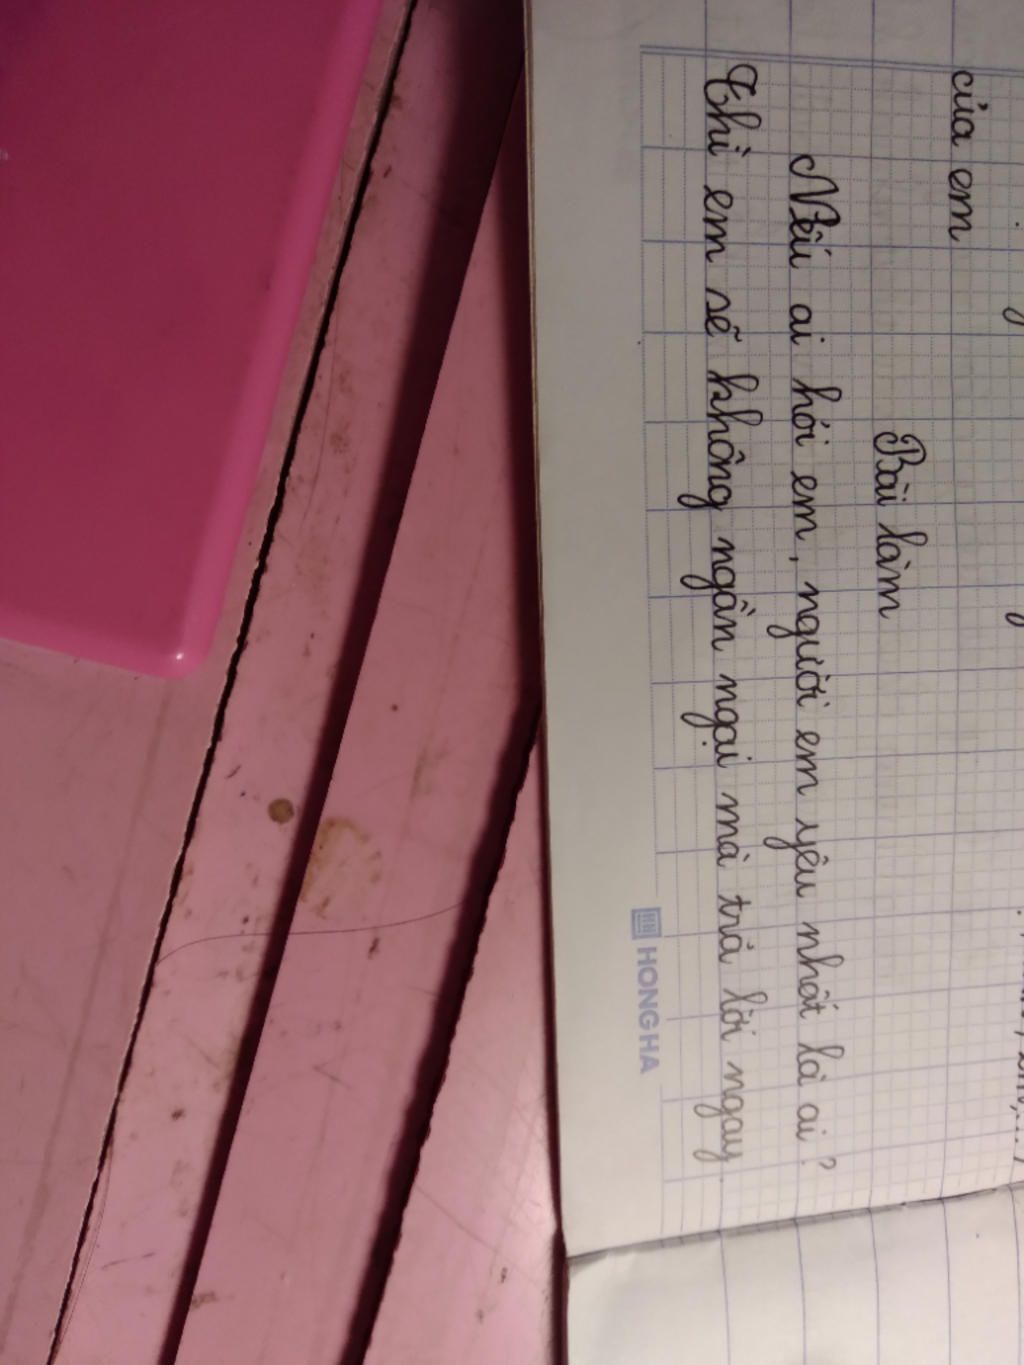 của em
Bài làm
Nếu ai hỏi em, người em yêu nhất là ai?
Thì em sẽ không ngần ngại mà trả lời ngay
HONG HA